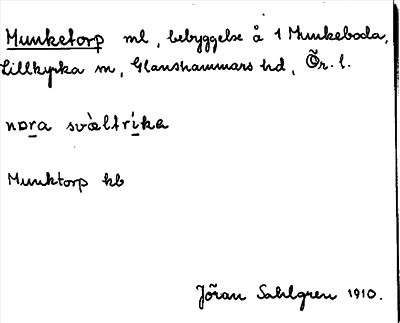 Munketorp ml, bebyggelse å 1 Munkeboda,
Lillkyrka sn, Glanshammars hd, Ör. l.
nɒra svàltrika
Munktorp kb
Jöran Sahlgren 1910.